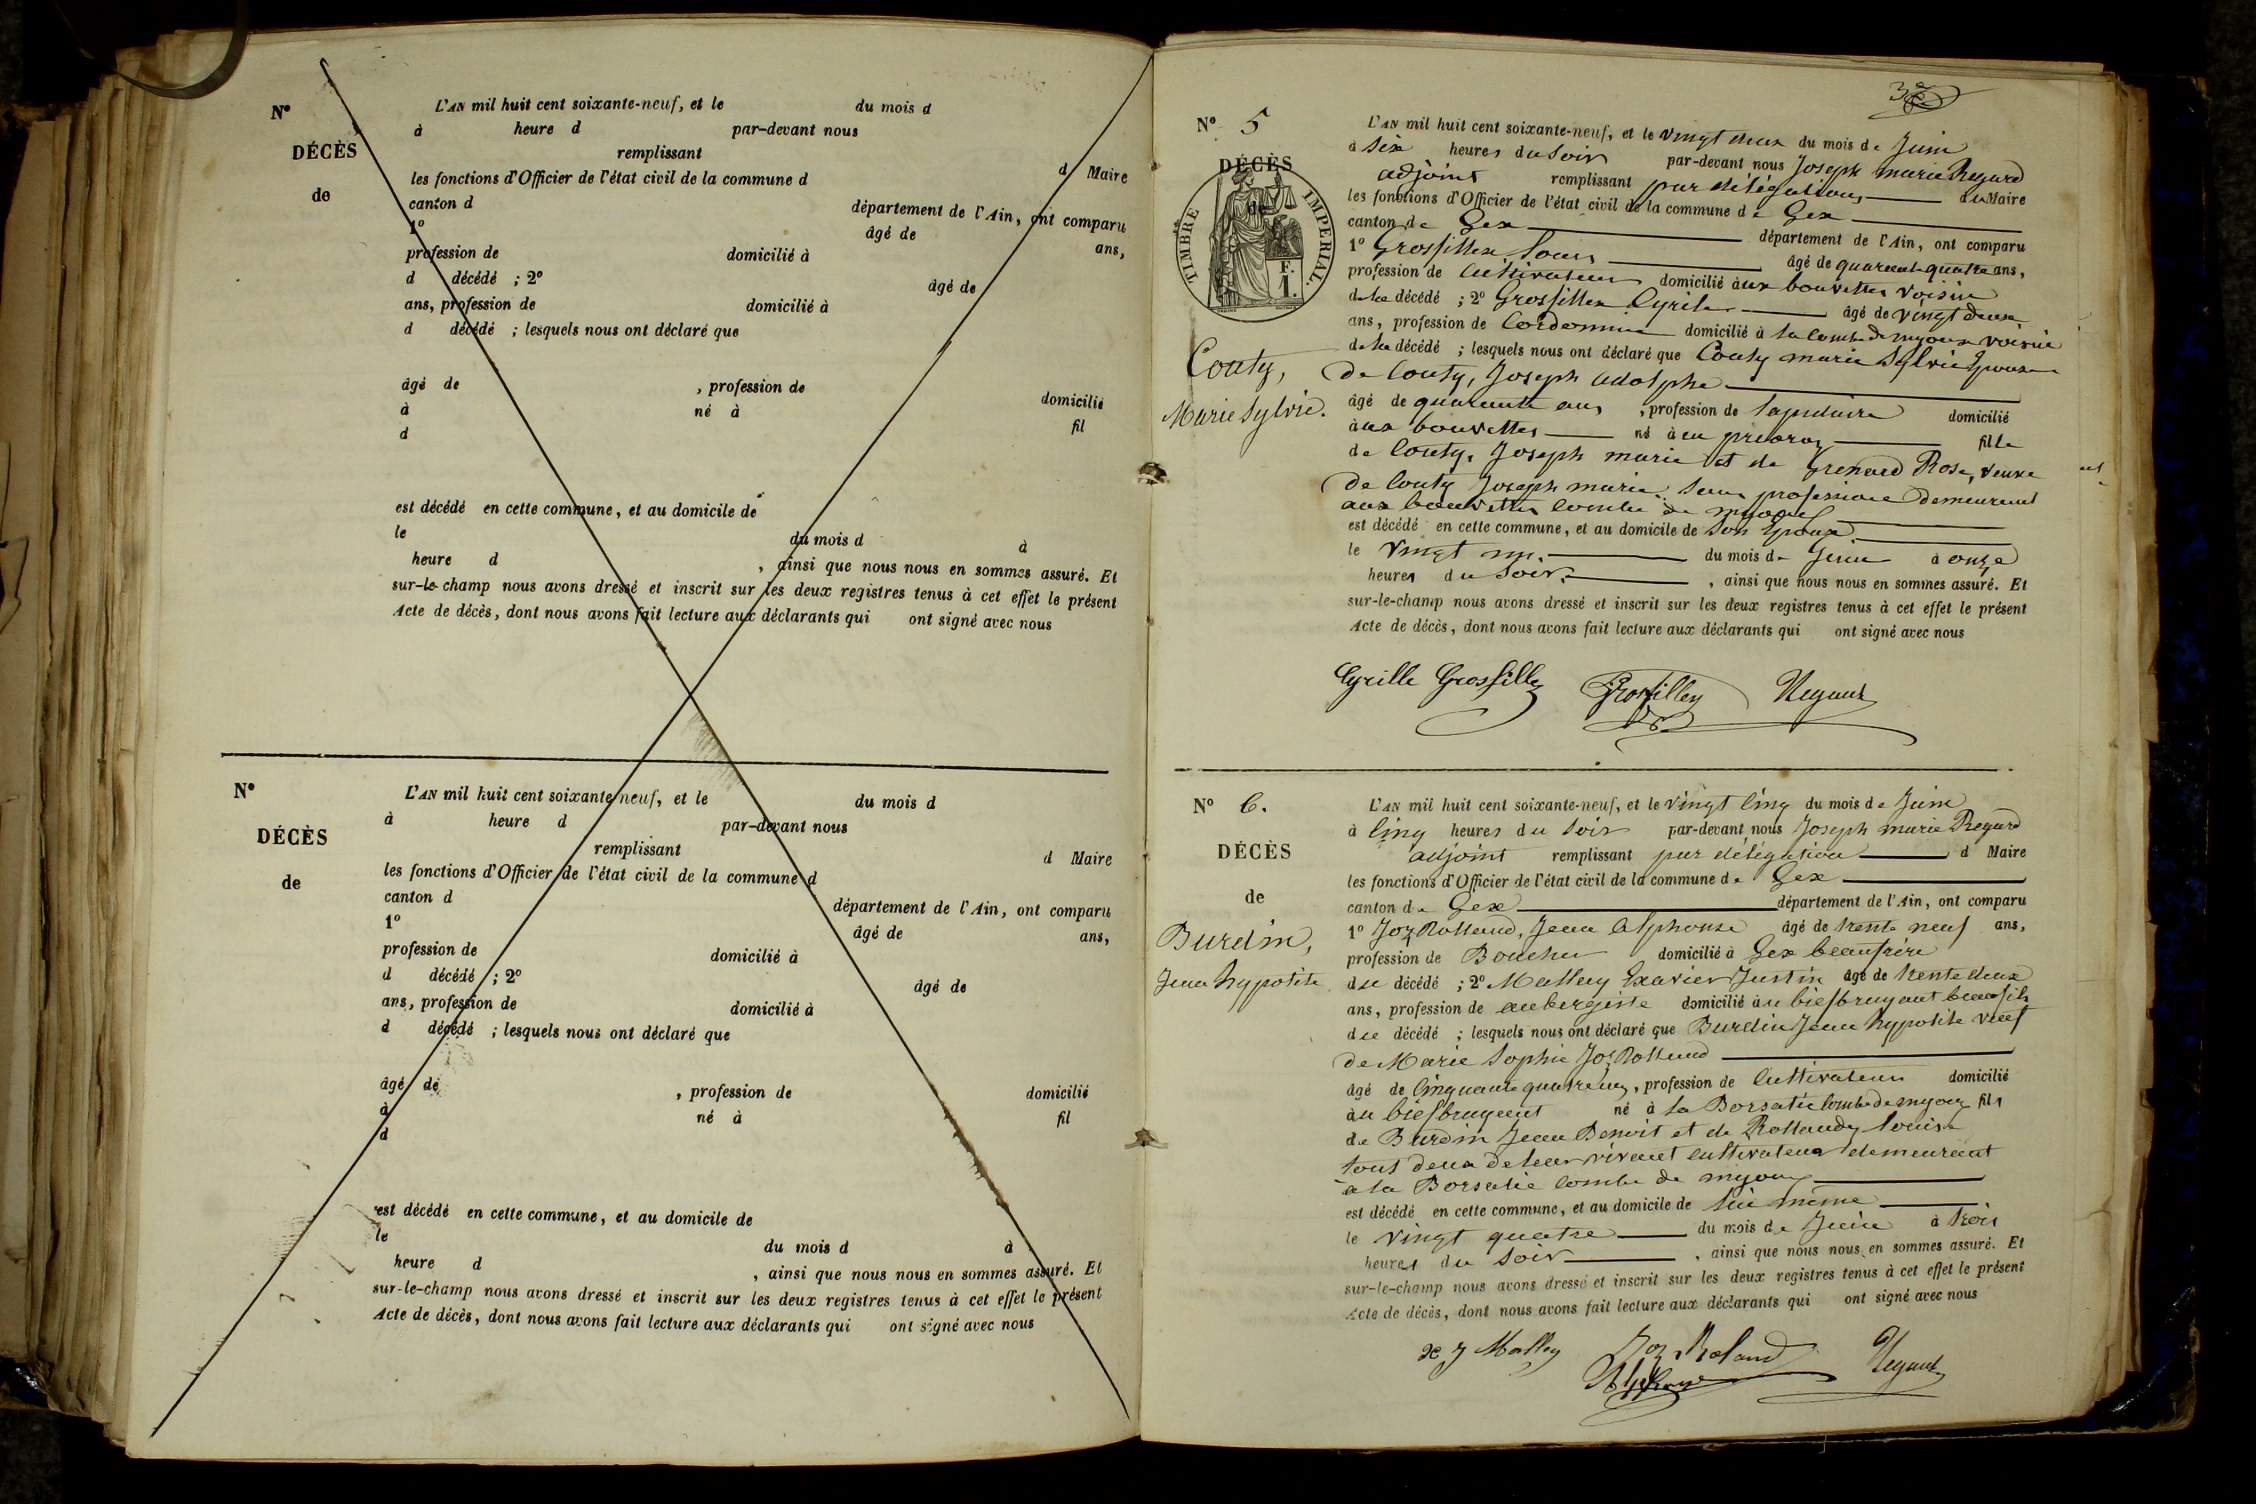 N°
DÉCÈS
de
L'AN mil huit cent soixante-neuf, et le du mois d
à heure d par-devant nous
remplissant d Maire
les fonctions d'Officier de l'état civil de la commune d
canton d département de l'Ain, ont comparu
1° âgé de ans,
profession de domicilié à
d décédé ; 2° âgé de
ans, profession de domicilié à
d décédé ; lesquels nous ont déclaré que
âgé de , profession de domicilié
à né à fil
d
est décédé en cette commune, et au domicile de
le du mois d à
heure d , ainsi que nous nous en sommes assuré. Et
sur-le-champ nous avons dressé et inscrit sur les deux registres tenus à cet effet le présent
Acte de décès, dont nous avons fait lecture aux déclarants qui ont signé avec nous
N°
DÉCÈS
de
L'AN mil huit cent soixante-neuf, et le du mois d
à heure d par-devant nous
remplissant d Maire
les fonctions d'Officier de l'état civil de la commune d
canton d département de l'Ain, ont comparu
1° âgé de ans,
profession de domicilié à
d décédé ; 2° âgé de
ans, profession de domicilié à
d décédé ; lesquels nous ont déclaré que
âgé de , profession de domicilié
à né à fil
d
est décédé en cette commune, et au domicile de
le du mois d à
heure d , ainsi que nous nous en sommes assuré. Et
sur-le-champ nous avons dressé et inscrit sur les deux registres tenus à cet effet le présent
Acte de décès, dont nous avons fait lecture aux déclarants qui ont signé avec nous
N° 5
DÉCÈS
de
TIMBRE IMPÉRIAL.
1 F.
Couty,
Marie Sylvie.
L'AN mil huit cent soixante-neuf, et le vingt deux du mois de Juin
à six heures du soir par-devant nous Joseph marie Regard
adjoint remplissant par délégation du Maire
les fonctions d'Officier de l'état civil de la commune de Gex
canton de Gex département de l'Ain, ont comparu
1° Grosfillex Louis âgé de quarante quatre ans,
profession de Cultivateur domicilié aux bouvettes voisin
de la décédé ; 2° Grosfillex Cyrile âgé de vingt deux
ans, profession de Cordonnier domicilié à la Combe de mijoux voisin
de la décédé ; lesquels nous ont déclaré que Couty marie Sylvie Epouse
de Couty, Joseph Adolphe
âgé de quarante ans , profession de lapidaire domicilié
aux bouvettes né à au prieray fille
de Couty, Joseph marie et de Grenard Rose, veuve
de Couty Joseph marie, sans profession demeurant
aux bouvettes Combe de mijoux
est décédé en cette commune, et au domicile de son Epoux
le vingt un. du mois de Juin à onze
heures du soir. , ainsi que nous nous en sommes assuré. Et
sur-le-champ nous avons dressé et inscrit sur les deux registres tenus à cet effet le présent
Acte de décès, dont nous avons fait lecture aux déclarants qui ont signé avec nous
Cyrille Grosfilley Grosfilley Regard
N° 6.
DÉCÈS
de
Burdin,
Jean hypolite
L'AN mil huit cent soixante-neuf, et le vingt Cinq du mois de Juin
à Cinq heures du soir par-devant nous Joseph marie Regard
adjoint remplissant par délégation d Maire
les fonctions d'Officier de l'état civil de la commune de Gex
canton de Gex département de l'Ain, ont comparu
1° Joz Rolland, Jean Alphonse âgé de trente neuf ans,
profession de Boucher domicilié à Gex beaufrère
du décédé ; 2° Malley Exavier Justin âgé de trente deux
ans, profession de aubergiste domicilié au biefbruyant beaufils
du décédé ; lesquels nous ont déclaré que Burdin Jean hypolite veuf
de Marie Sophie Joz Rolland
âgé de Cinquante quatre ans, profession de Cultivateur domicilié
au biefbruyant né à la Borsatie Combe de mijoux fils
de Burdin Jean Benoit et de Rollandy Louise
tous deux de leur vivant cultivateur demeurant
à la Borsatie Combe de mijoux
est décédé en cette commune, et au domicile de lui même
le vingt quatre du mois de Juin à trois
heures du soir , ainsi que nous nous en sommes assuré. Et
sur-le-champ nous avons dressé et inscrit sur les deux registres tenus à cet effet le présent
Acte de décès, dont nous avons fait lecture aux déclarants qui ont signé avec nous
x j Malley Joz Roland Alphonse Regard